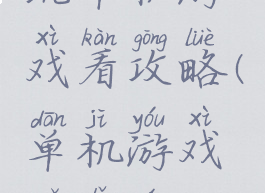 xì kàn gōng lüè
戏看攻略(
dān jī yóu xì
单机游戏